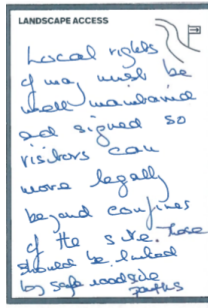 LANDSCAPE ACCESS
Local rights
of way must be
well maintained
and signed so
visitors can
move legally
beyond confines
of the site. These
should be linked
by safe roadside
paths